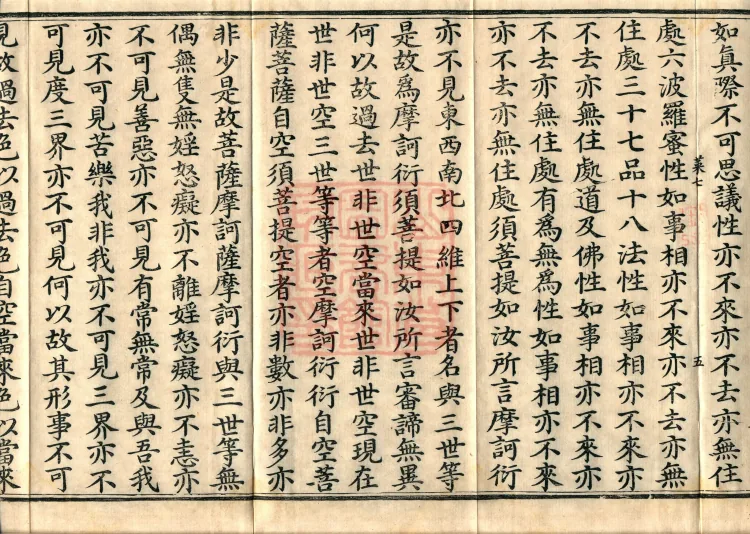 如真際不可思議性亦不來亦不去亦無住
處六波羅蜜性如事相亦不來亦不去亦無
菜七
五
住處三十七品十八法性如事相亦不來亦
不去亦無住處道及佛性如事相亦不來亦
不去亦無住處有爲無爲性如事相亦不來
亦不去亦無住處須菩提如汝所言摩訶衍
亦不見東西南北四維上下者名與三世等
是故爲摩訶衍須菩提如汝所言審諦無異
何以故過去世非世空當來世非世空現在
世非世空三世等等者空摩訶衍衍自空菩
薩菩薩自空須菩提空者亦非數亦非多亦
非少是故菩薩摩訶薩摩訶衍與三世等無
偶無隻無婬怒癡亦不離婬怒癡亦不恚亦
不可見善惡亦不可見有常無常及與吾我
亦不可見苦樂我非我亦不可見三界亦不
可見度三界亦不可見何以故其形事不可
見故過去色以過去色自空當來色以當來